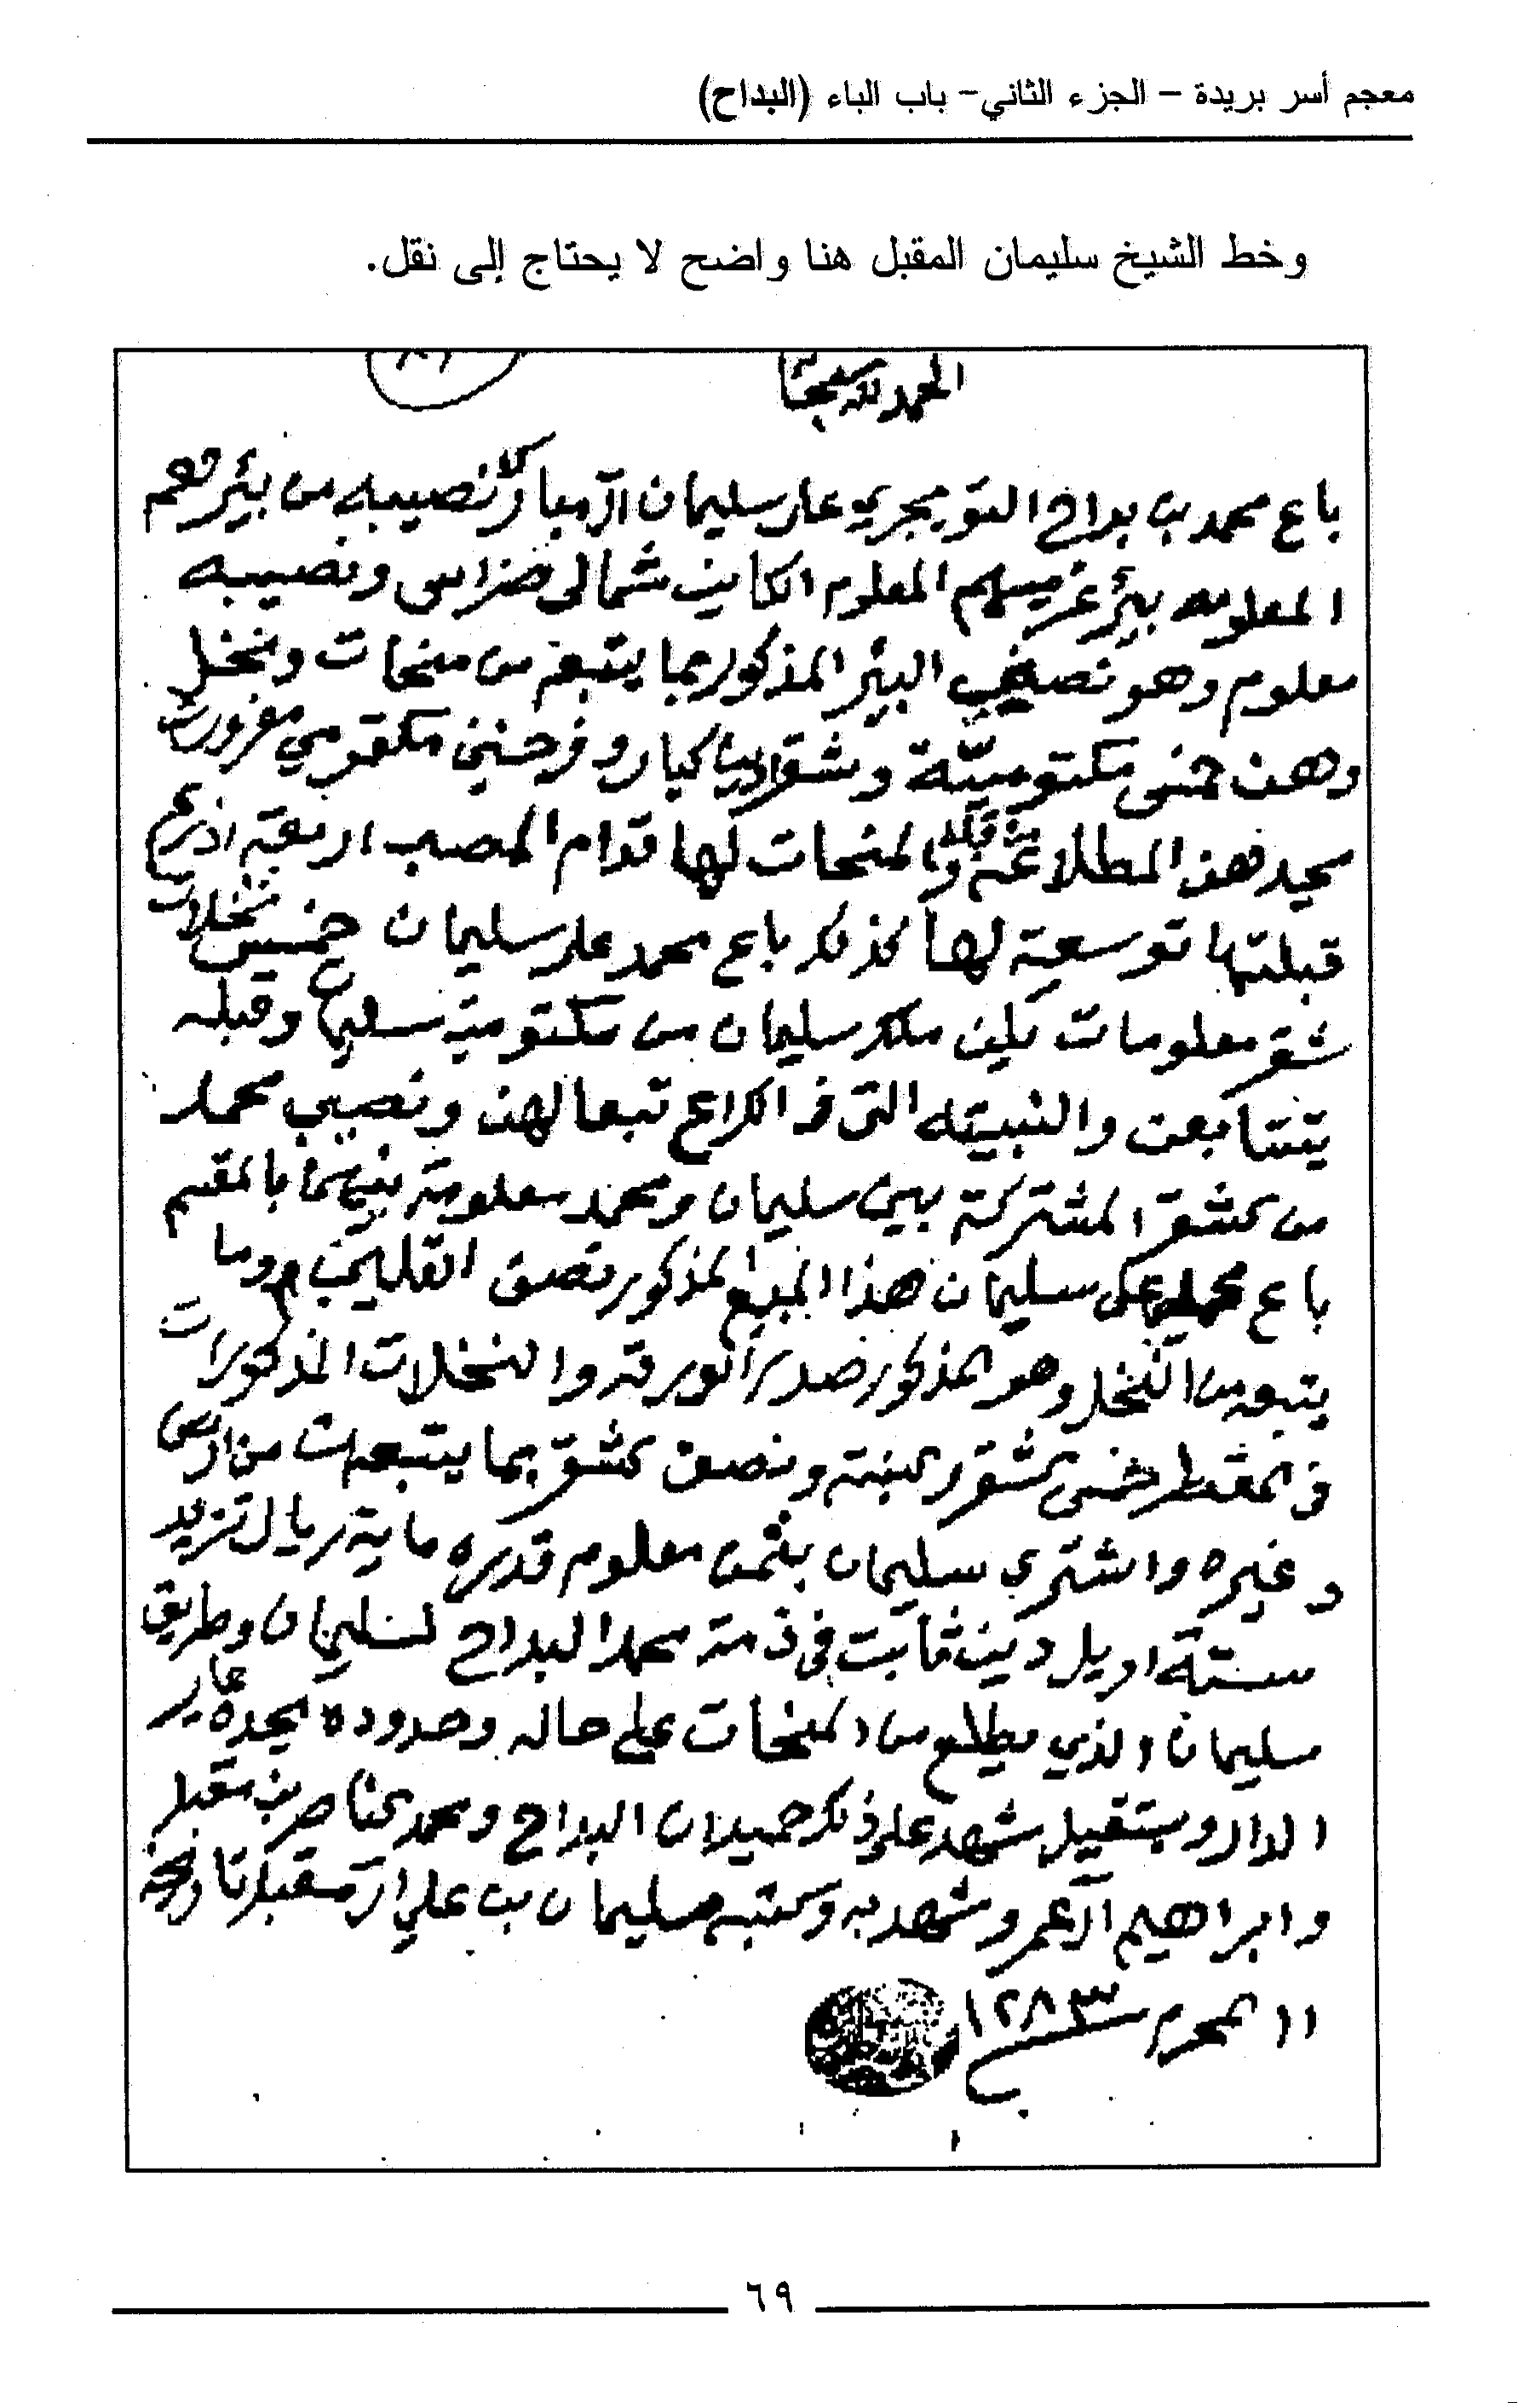 معجم أسر بريدة – الجزء الثاني– باب الباء (البداح)
وخط الشيخ سليمان المقبل هنا واضح لا يحتاج إلى نقل.
الحمد لله سبحانه
باع محمد بن بداح التويجري على سليمان آل مبارك نصيبه من بئرهم
المعلومه بئر غريسهم المعلوم الكاين شمالي ونصيبه
معلوم وهو نصيف البئر المذكور بما يتبعه من منحات ونخل
وهن خمس مكتوميتة وشقراوين كبار وفرختين مكتومي مغرورت
هن المطلاع والمنحات لها قدام المصب اربعة اذرع
قبلتها توسعة لها كذلك باع محمد على سليمان خمس نخلات
شقر معلومات يلين ملك سليمان من مكتومية سليمان وقبله
يتتابعن والنبيته التي في الكراع تبعا لهن ونصيب محمد
من الشقر المشتركة بين سليمان ومحمد معلومة بينهما بالقسم
باع محمد على سليمان هذا المبيع المذكور نصف القليب وما
يتبعه من النخل وهو المذكور صدر الورقه والنخلات المذكورات
في المقطر خمس الشقر والنبته ونصف الشقر بما يتبعهن من ارض
وغيره واشتري سليمان بثمن معلوم قدره ماية ريال تزيد
ستة اريل دين ثابت في ذمة محمد البداح لسليمان وطريق
سليمان الذي يطلع من المنحات على حاله وحدوده يحده على
الدار ويستقيل شهد على ذلك حميدان البداح ومحمد الناصر بن مقبل
وابراهيم آل عمر وشهد به وكتبه سليمان بن علي آل مقبل تاريخه
١١ محرم ١٢٨٣
٦٩